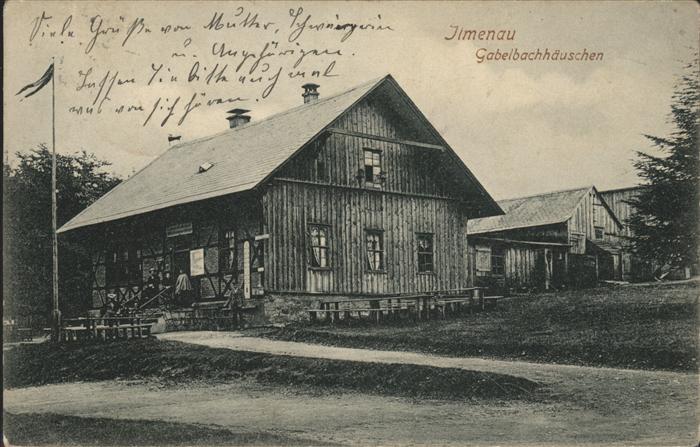 Viele Grüße von Mutter, Schwägerin
u. Angehörigen.
Lassen Sie bitte auch mal
was von sich hören.
Ilmenau
Gabelbachhäuschen